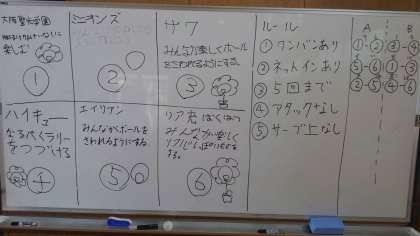 大阪聖火学園
楽しむ
①
ミニオンズ
②
サワ
みんなが楽しくボール
をさわれるようにする。
③
ハイキュー
なるべくラリー
をつづける
4
エイリアン
みんながボールを
さわれるようにする。
⑤
リア充ばくはつ
みんなが楽しく
する。
⑥
ルール
①ワンバンあり
②ネットインあり
③5回まで
④アタックなし
⑤サーブ上なし
A B
①-② ③-④
⑤-⑥ ①-③
②-⑤ ④-⑥